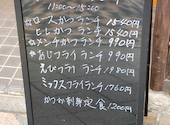 11:00〜15:00
☆ロースかつランチ 1540円
ヒレかつランチ 1540円
☆メンチかつランチ 990円
☆あじフライランチ 990円
えびフライランチ 1980円
ミックスフライランチ 1760円
かつ刺身定食 1200円